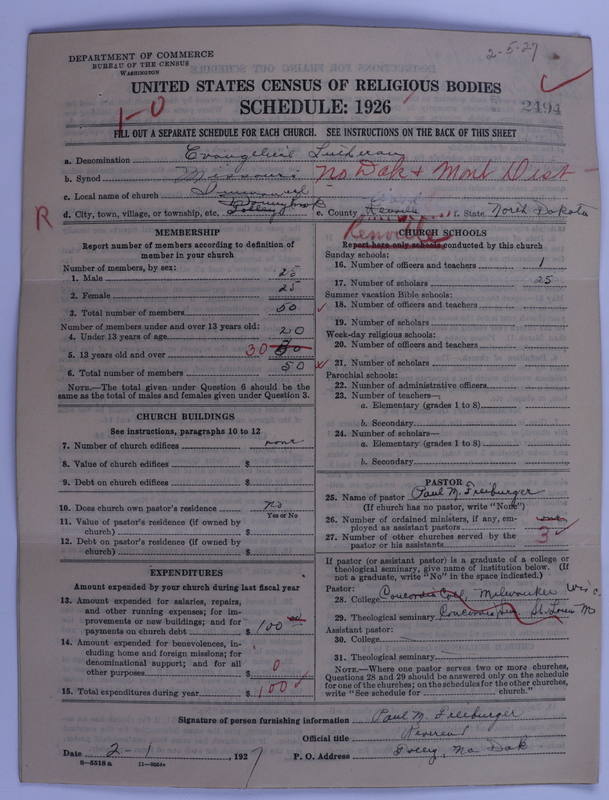 2-5-27
DEPARTMENT OF COMMERCE
BUREAU OF THE CENSUS
WASHINGTON
UNITED STATES CENSUS OF RELIGIOUS BODIES
SCHEDULE: 1926
2494
1-0
FILL OUT A SEPARATE SCHEDULE FOR EACH CHURCH. SEE INSTRUCTIONS ON THE BACK OF THIS SHEET
a. Denomination Evangelical Lutheran
b. Synod Missouri No Dak & Mont Dist
c. Local name of church Immanuel
R d. City, town, village, or township, etc. Tolley e. County Renville f. State North Dakota
Renville
MEMBERSHIP
Report number of members according to definition of
member in your church
Number of members, by sex:
1. Male 25
2. Female 25
3. Total number of members 50
Number of members under and over 13 years old:
4. Under 13 years of age 20
5. 13 years old and over 30
6. Total number of members 50
NOTE.—The total given under Question 6 should be the
same as the total of males and females given under Question 3.
CHURCH BUILDINGS
See instructions, paragraphs 10 to 12
7. Number of church edifices none
8. Value of church edifices $
9. Debt on church edifices $
10. Does church own pastor's residence no
Yes or No
11. Value of pastor's residence (if owned by
church) $
12. Debt on pastor's residence (if owned by
church) $
EXPENDITURES
Amount expended by your church during last fiscal year
13. Amount expended for salaries, repairs,
and other running expenses; for im-
provements or new buildings; and for
payments on church debt $ 100
14. Amount expended for benevolences, in-
cluding home and foreign missions; for
denominational support; and for all
other purposes $ 0
15. Total expenditures during year $ 100
CHURCH SCHOOLS
Report here only schools conducted by this church
Sunday schools:
16. Number of officers and teachers 1
17. Number of scholars 25
Summer vacation Bible schools:
18. Number of officers and teachers
19. Number of scholars
Week-day religious schools:
20. Number of officers and teachers
21. Number of scholars
Parochial schools:
22. Number of administrative officers
23. Number of teachers—
a. Elementary (grades 1 to 8)
b. Secondary
24. Number of scholars—
a. Elementary (grades 1 to 8)
b. Secondary
PASTOR
25. Name of pastor Paul M. Freiburger
(If church has no pastor, write "None")
26. Number of ordained ministers, if any, em-
ployed as assistant pastors
27. Number of other churches served by the
pastor or his assistants 3
If pastor (or assistant pastor) is a graduate of a college or
theological seminary, give name of institution below. (If
not a graduate, write "No" in the space indicated.)
Pastor:
28. College Concordia Coll, Milwaukee Wisc.
29. Theological seminary Concordia Sem St. Louis Mo
Assistant pastor:
30. College
31. Theological seminary
NOTE.—Where one pastor serves two or more churches,
Questions 28 and 29 should be answered only on the schedule
for one of the churches; on the schedules for the other churches,
write "See schedule for church."
Signature of person furnishing information Paul M. Freiburger
Official title Reverend
Date 2-1, 1927 P. O. Address Tolley, No Dak
8-5518a